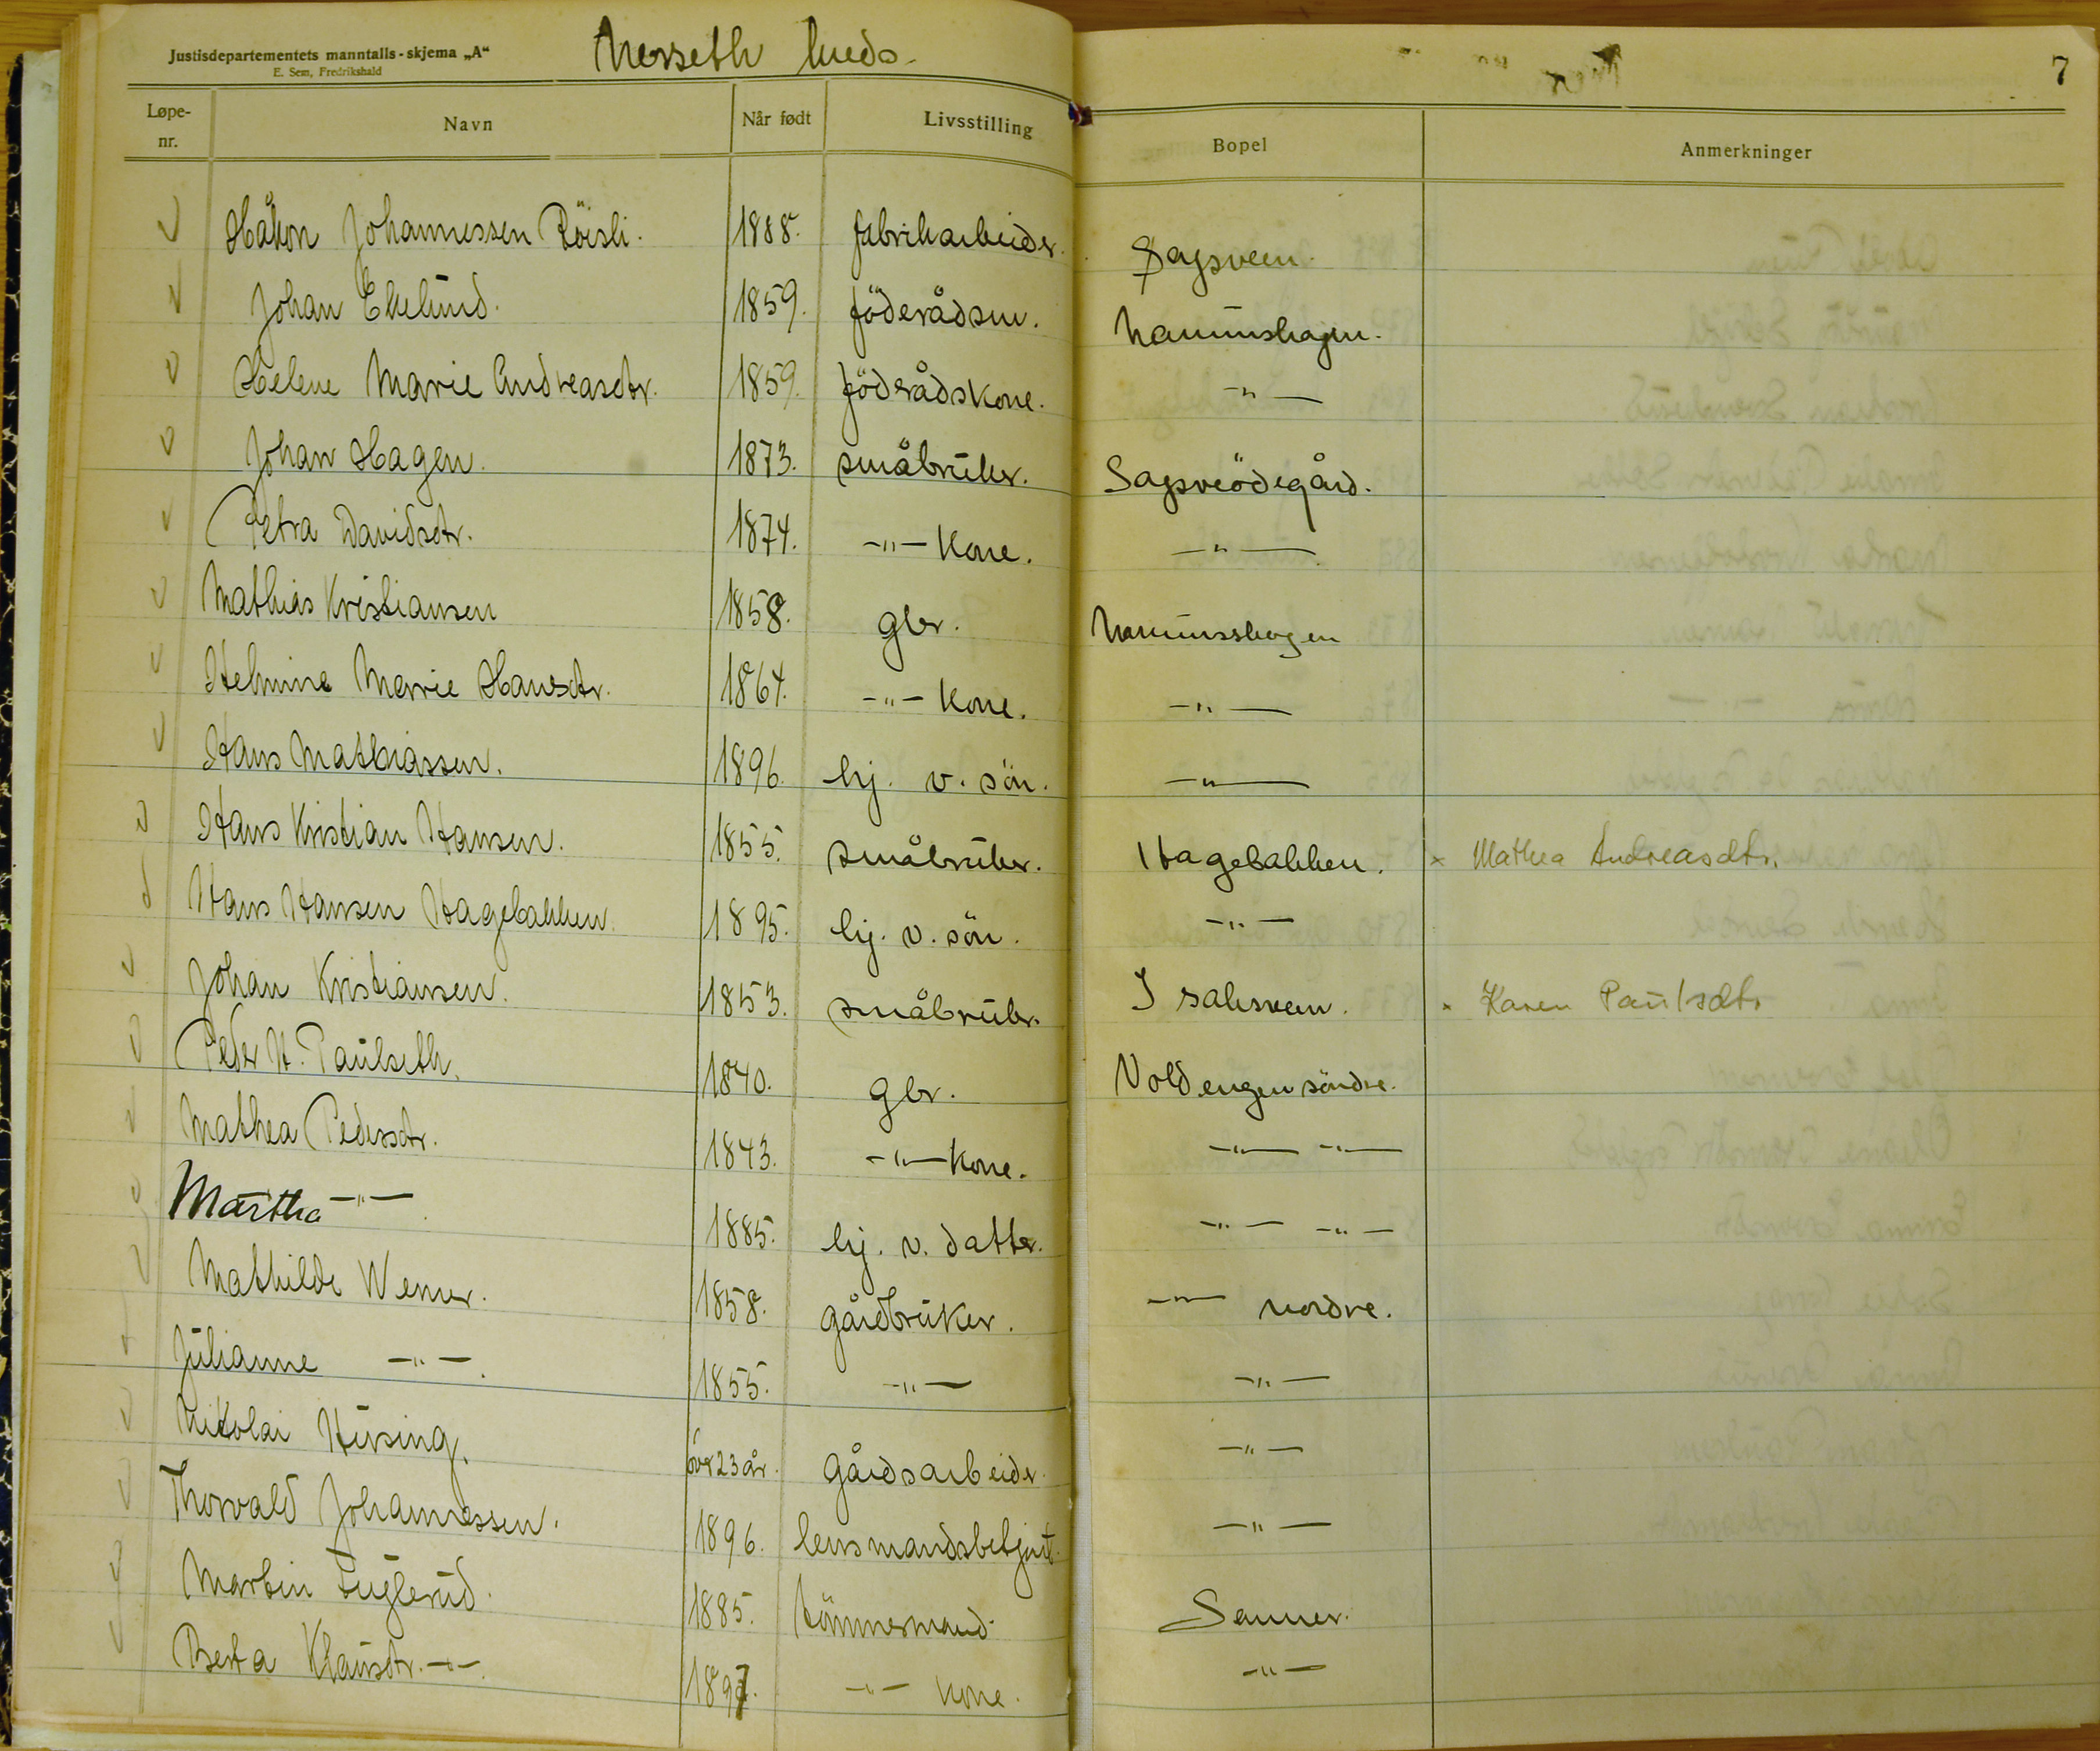 Justisdepartementets manntalls-skjema „A“
E. Sem, Fredrikshald
7
Løpe-nr. Navn Når født Livsstilling Bopel Anmerkninger
V Håkon Johannessen Röisli. 1888. fabrikarbeider. Sagsveen.
V Johan Ekelund. 1859. föderådsm. Hammershagen.
V Helene Marie Andreasdtr. 1859. föderådskone. -"-
V Johan Hagen. 1873. småbruker. Sagsveödegård.
V Petra Davidsdtr. 1874. -"- kone. -"-
V Mathias Kristiansen 1858. gbr.
V Helmine Marie Hansdtr. 1864. -"- kone. -"-
V Hans Mathiassen. 1896. hj. v. sön. -"-
V Hans Kristian Hansen. 1855. småbruker. Hagebakken. x Mathea Andreasdtr.
V Hans Hansen Hagebakken. 1895. hj. v. sön. -"-
V Johan Kristiansen. 1853. småbruker. Isaksveen. x Karen Paulsdtr
V Peder H. Paulseth. 1840. gbr. Voldengen söndre.
V Mathea Pedersdtr. 1843. -"- kone. -"- -"-
V Martha -"- 1885. hj. v. datter. -"- -"-
V Mathilde Wemer. 1858. gårdbruker. -"- nordre.
V Julianne -"-. 1855. -"- -"-
V Nikolai Hüsing. över 23 år. gårdsarbeider. -"-
V Thorvald Johannessen. 1896. lensmandsbetjent. -"-
V Martin Fuglerud. 1885. tömmermand. Sanner.
V Berta Klausdtr. -"-. 1897. -"- kone. -"-